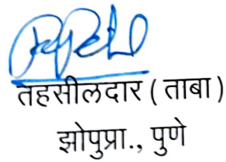 तहसीलदार ( ताबा )
झोपुप्रा., पुणे